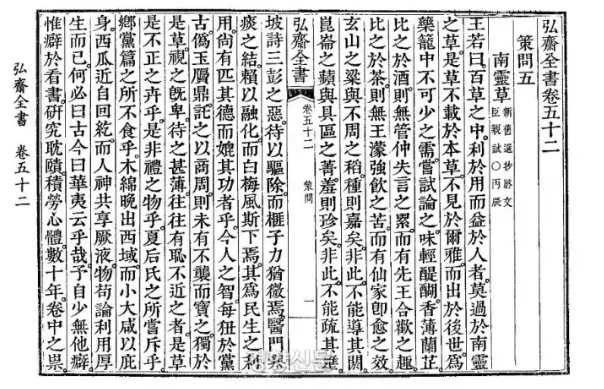 弘齋全書卷五十二
策問五
南靈草 新舊選抄啓文臣親試○丙辰
王若曰百草之中利於用而益於人者莫過於南靈
之草是草不載於本草不見於爾雅而出於後世爲
藥籠中不可少之需嘗試論之味輕醍醐香薄蘭芷
比之於酒則無管仲失言之累而有先王合歡之趣
比之於茶則無王濛強飮之苦而有仙家卽愈之效
玄山之粱與不周之稻種則嘉矣非此不能導其關
崑崙之蘋與具區之菁羞則珍矣非此不能疏其壅
弘齋全書 卷五十二 策問 一
坡詩三彭之惡待以驅除而榧子力猶微焉醫門來
痰之結賴以融化而白梅風斯下焉其爲民生之利
用尚有匹其德而媲其功者乎今人之智每狃於黨
古僞玉贗鼎託之以商周則未有不襲而寶之獨於
是草視之旣卑待之甚薄往往有恥不近之者是草
是不正之卉乎是非禮之物乎夏后氏之所嘗斥乎
鄕黨篇之所不食乎木綿晚出西域而小大咸以庇
身西瓜近自回紇而人神共享厥液物苟論利用厚
生而已何必曰古今曰華夷云乎哉予自少無他癖
惟癖於看書硏究耽賾積勞心體數十年卷中之祟
弘齋全書 卷五十二
신문